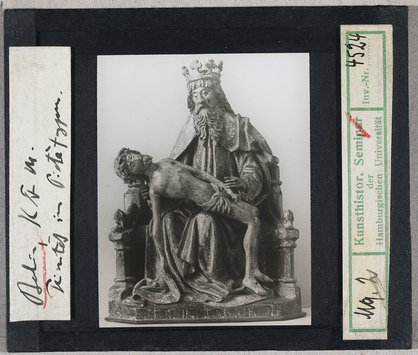 Berlin K F M.
Trinität im Pietàtypus.
Kunsthistor. Seminar
der
Hamburgischen Universität
Inv.-Nr. 4524